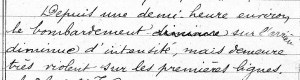 Depuis une demi-heure environ
le bombardement diminue sur l'arrière
diminue d'intensité, mais demeure
très violent sur les premières lignes.